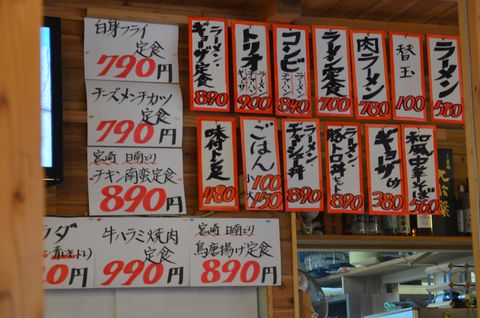 白身フライ
定食
790円
チーズメンチカツ
定食
790円
宮崎 日南どり
チキン南蛮定食
890円
ラダ
円
牛ハラミ焼肉
定食
990円
宮崎 日南どり
鳥唐揚げ定食
890円
ラーメン
ギョーザ定食
890
トリオ
ラーメン
チャーハン
ギョーザ
900
コンビ
ラーメン
チャーハン
840
ラーメン定食
700
肉ラーメン
780
替玉
100
ラーメン
580
味付トン足
480
ごはん
小100
大150
ラーメン・
チャーシュー丼
890
ラーメン・
豚トロ丼セット
890
ギョーザ
380
和風中華そば
560